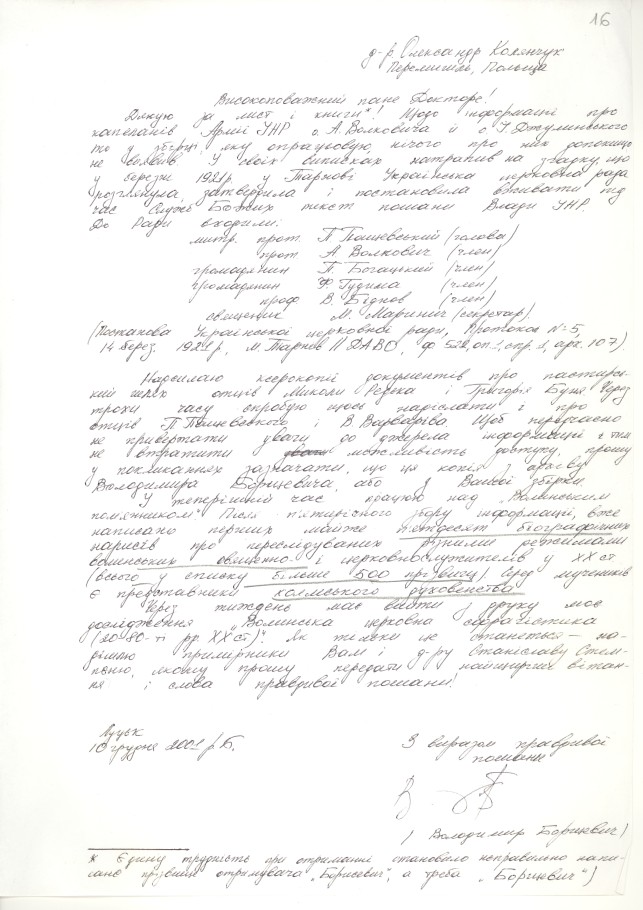 16
д-р Олександр Колянчук
Перемишль, Польща
Високоповажний пане Докторе!
Дякую за лист і книги*! Щодо інформації про
капеланів Армії УНР о. А. Волковича й о. І. Джулинського
то у збірці, яку опрацьовую, нічого про них допоки що
не виявив. У своїх виписках натрапив на згадку, що
у березні 1921 р. у Тарнові Українська церковна рада
розглянула, затвердила і постановила вживати під
час Служб Божих текст пошани Влади УНР.
До Ради входили:
митр. прот. П Пащевський (голова)
прот. А Волкович (член)
громадянин П. Богацький (член)
громадянин Ф. Гудима (член)
проф В. Біднов (член)
священик М. Маринич (секретар).
(Постанова Української церковної ради, Протокол № 5,
14 берез. 1921 р, м. Тарнов // ДАВО, ф 522, оп. 1, спр. 1, арк. 107)
Надсилаю ксерокопії документів про пастирсь-
кий шлях отців Миколи і Григорія Через
трохи часу спробую щось надіслати і про
отців П Пащевського і В. Варваріва. Щоб передчасно
не привертати уваги до джерела інформації і тим
не втратити можливість доступу, прошу
у покликаннях зазначати, що ця копія з архіву
Володимира Борщевича, або з Вашої збірки.
У теперішній час працюю над „Волинським
пом'янником“ Після п'ятирічного збору інформації, вже
написано перших майже п'ятдесят біографічних
нарисів про переслідуваних різними режимами
волинських священно- і церковнослужителів у ХХ ст
(всього у списку більше 500 прізвищ). Серед мучеників
є представники холмського духовенства.
Через тиждень має вийти з друку моє
дослідження „Волинська церковна сфрагістика
(20-80-ті рр. ХХ ст.)“. Як тільки це станеться — на-
дішлю примірники Вам і д-ру Станіславу Стем-
пєню, якому прошу передати найщиріші вітан-
ня і слова правдивої пошани!
Луцьк
10 грудня 2001 р. Б.
З виразом правдивої
пошани
/ Володимир Борщевич /
* Єдину трудність при отриманні становило неправильно напи-
сане прізвище отримувача „Борисевич“, а треба „Борщевич“)